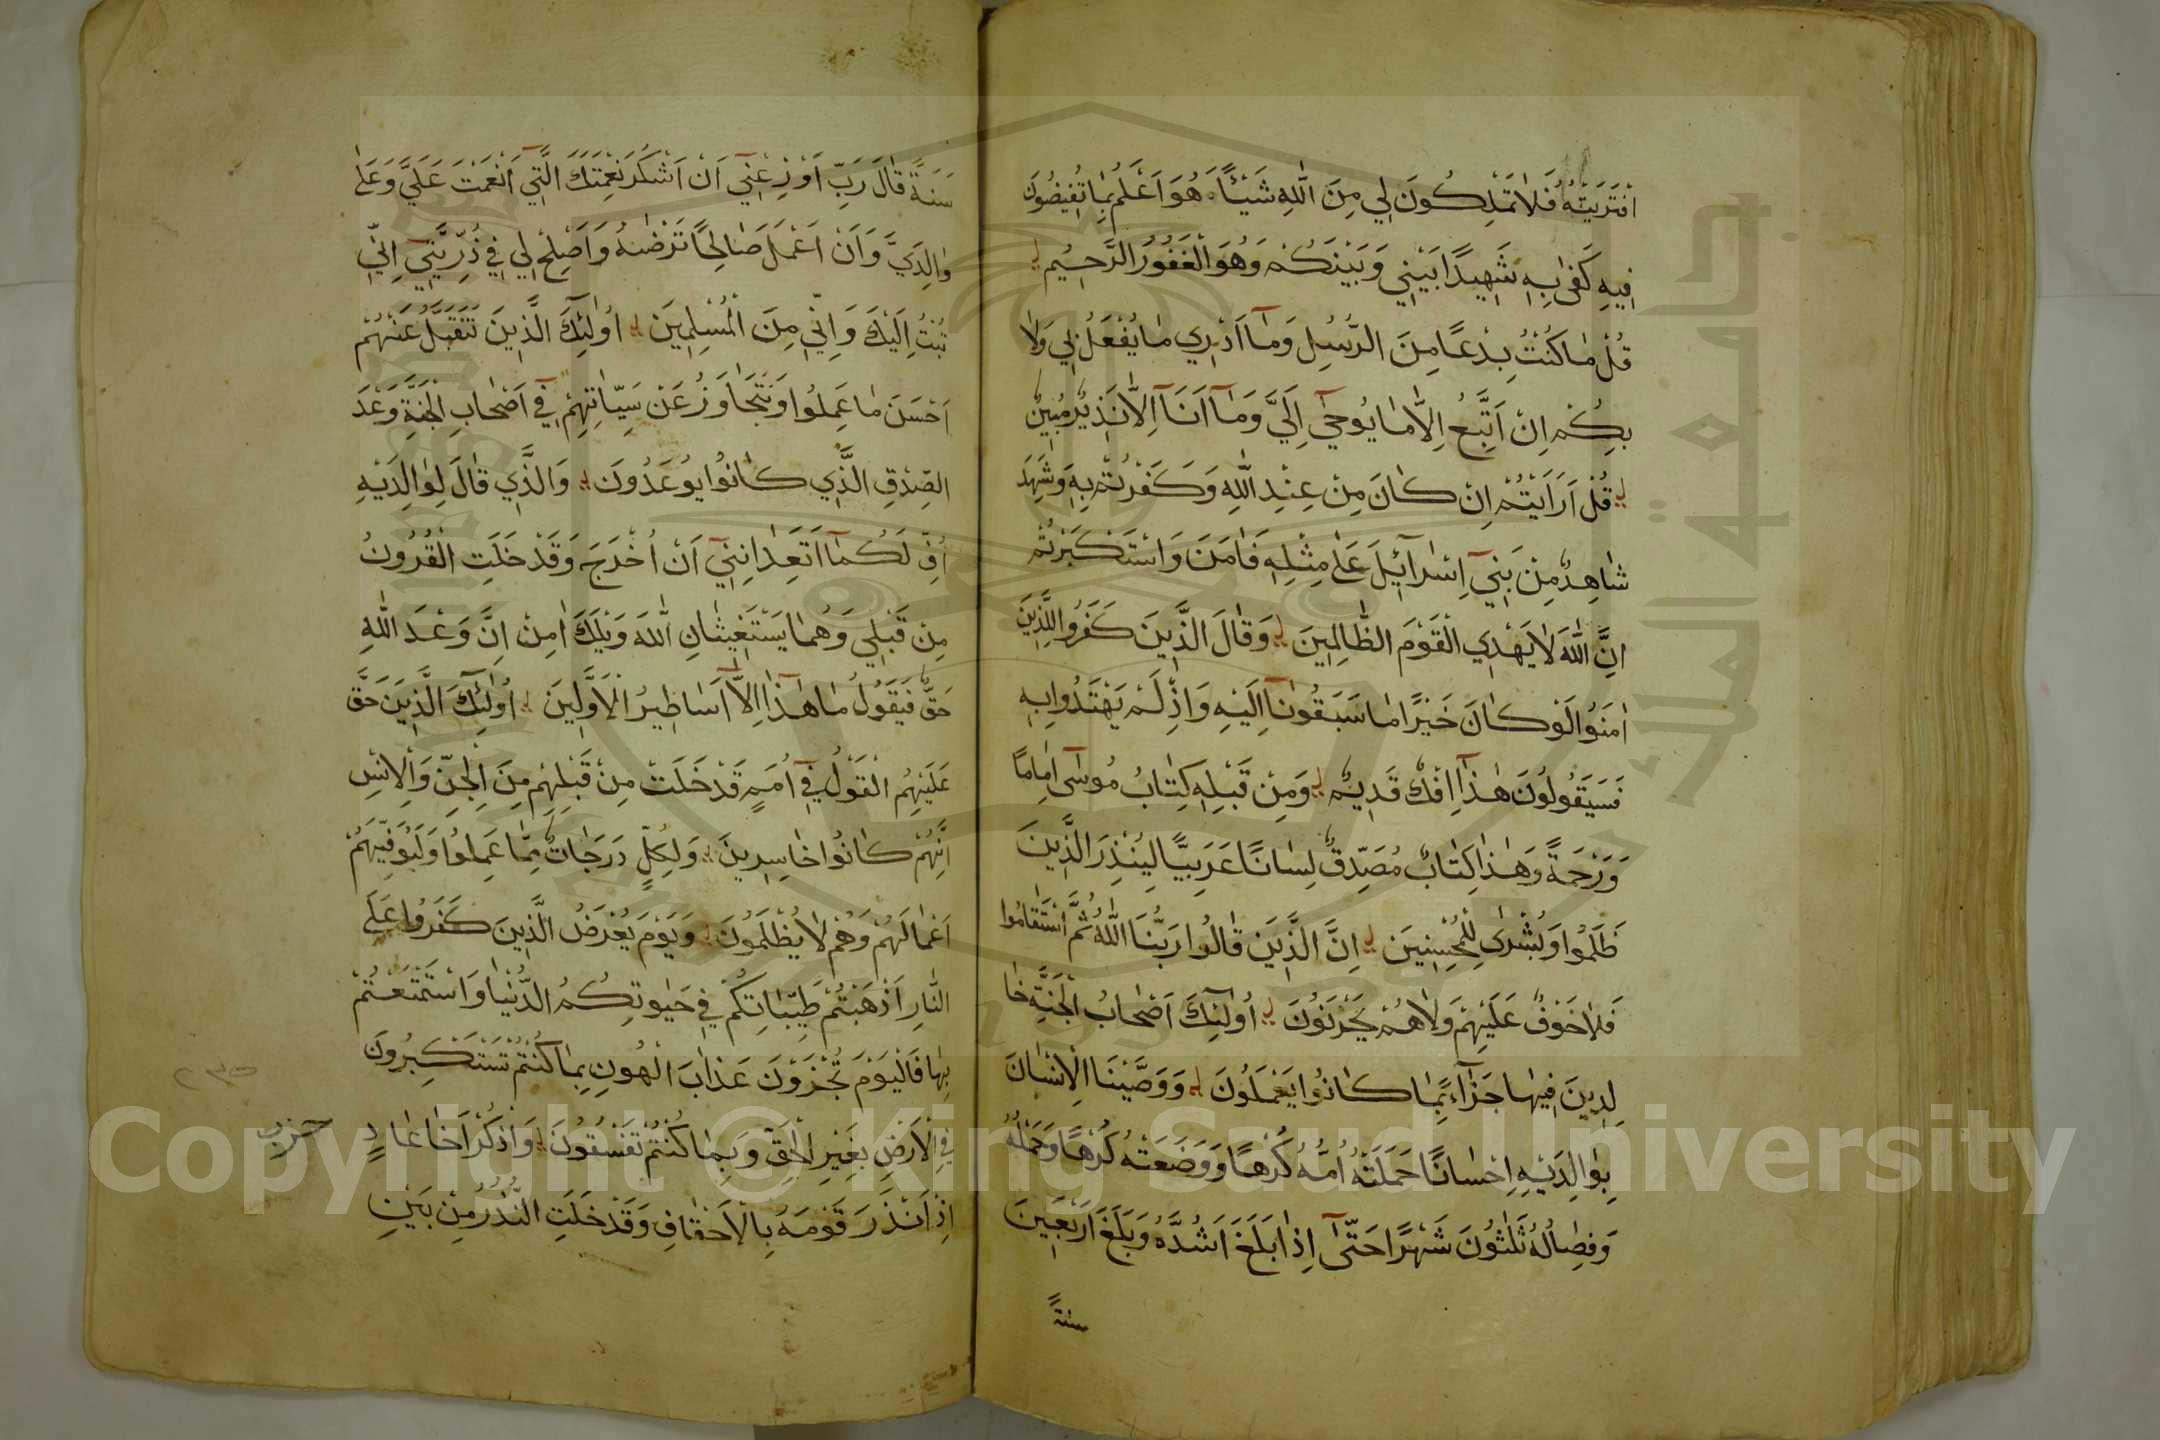 افْتَرَيْتُهُ فَلَا تَمْلِكُونَ لِي مِنَ اللَّهِ شَيْئًا هُوَ أَعْلَمُ بِمَا تُفِيضُونَ
فِيهِ كَفَى بِهِ شَهِيدًا بَيْنِي وَبَيْنَكُمْ وَهُوَ الْغَفُورُ الرَّحِيمُ
قُلْ مَا كُنْتُ بِدْعًا مِنَ الرُّسُلِ وَمَا أَدْرِي مَا يُفْعَلُ بِي وَلَا
بِكُمْ إِنْ أَتَّبِعُ إِلَّا مَا يُوحَى إِلَيَّ وَمَا أَنَا إِلَّا نَذِيرٌ مُبِينٌ
قُلْ أَرَأَيْتُمْ إِنْ كَانَ مِنْ عِنْدِ اللَّهِ وَكَفَرْتُمْ بِهِ وَشَهِدَ
شَاهِدٌ مِنْ بَنِي إِسْرَائِيلَ عَلَى مِثْلِهِ فَآمَنَ وَاسْتَكْبَرْتُمْ
إِنَّ اللَّهَ لَا يَهْدِي الْقَوْمَ الظَّالِمِينَ وَقَالَ الَّذِينَ كَفَرُوا لِلَّذِينَ
آمَنُوا لَوْ كَانَ خَيْرًا مَا سَبَقُونَا إِلَيْهِ وَإِذْ لَمْ يَهْتَدُوا بِهِ
فَسَيَقُولُونَ هَذَا إِفْكٌ قَدِيمٌ وَمِنْ قَبْلِهِ كِتَابُ مُوسَى إِمَامًا
وَرَحْمَةً وَهَذَا كِتَابٌ مُصَدِّقٌ لِسَانًا عَرَبِيًّا لِيُنْذِرَ الَّذِينَ
ظَلَمُوا وَبُشْرَى لِلْمُحْسِنِينَ إِنَّ الَّذِينَ قَالُوا رَبُّنَا اللَّهُ ثُمَّ اسْتَقَامُوا
فَلَا خَوْفٌ عَلَيْهِمْ وَلَا هُمْ يَحْزَنُونَ أُولَئِكَ أَصْحَابُ الْجَنَّةِ خَا
لِدِينَ فِيهَا جَزَاءً بِمَا كَانُوا يَعْمَلُونَ وَوَصَّيْنَا الْإِنْسَانَ
بِوَالِدَيْهِ إِحْسَانًا حَمَلَتْهُ أُمُّهُ كُرْهًا وَوَضَعَتْهُ كُرْهًا وَحَمْلُهُ
وَفِصَالُهُ ثَلَثُونَ شَهْرًا حَتَّى إِذَا بَلَغَ أَشُدَّهُ وَبَلَغَ أَرْبَعِينَ
سنةً
سَنَةً قَالَ رَبِّ أَوْزِعْنِي أَنْ أَشْكُرَ نِعْمَتَكَ الَّتِي أَنْعَمْتَ عَلَيَّ وَعَلَى
وَالِدَيَّ وَأَنْ أَعْمَلَ صَالِحًا تَرْضَىهُ وَأَصْلِحْ لِي فِي ذُرِّيَّتِي إِنِّي
تُبْتُ إِلَيْكَ وَإِنِّي مِنَ الْمُسْلِمِينَ أُولَئِكَ الَّذِينَ نَتَقَبَّلُ عَنْهُمْ
أَحْسَنَ مَا عَمِلُوا وَنَتَجَاوَزُ عَنْ سَيِّئَاتِهِمْ فِي أَصْحَابِ الْجَنَّةِ وَعْدَ
الصِّدْقِ الَّذِي كَانُوا يُوعَدُونَ وَالَّذِي قَالَ لِوَالِدَيْهِ
أُفٍّ لَكُمَا أَتَعِدَانِنِي أَنْ أُخْرَجَ وَقَدْ خَلَتِ الْقُرُونُ
مِنْ قَبْلِي وَهُمَا يَسْتَغِيثَانِ اللَّهَ وَيْلَكَ آمِنْ إِنَّ وَعْدَ اللَّهِ
حَقٌّ فَيَقُولُ مَا هَذَا إِلَّا أَسَاطِيرُ الْأَوَّلِينَ أُولَئِكَ الَّذِينَ حَقَّ
عَلَيْهِمُ الْقَوْلُ فِي أُمَمٍ قَدْ خَلَتْ مِنْ قَبْلِهِمْ مِنَ الْجِنِّ وَالْإِنْسِ
إِنَّهُمْ كَانُوا خَاسِرِينَ وَلِكُلٍّ دَرَجَاتٌ مِمَّا عَمِلُوا وَلِيُوَفِّيَهُمْ
أَعْمَالَهُمْ وَهُمْ لَا يُظْلَمُونَ وَيَوْمَ يُعْرَضُ الَّذِينَ كَفَرُوا عَلَى
النَّارِ أَذْهَبْتُمْ طَيِّبَاتِكُمْ فِي حَيَوتِكُمُ الدُّنْيَا وَاسْتَمْتَعْتُمْ
بِهَا فَالْيَوْمَ تُجْزَوْنَ عَذَابَ الْهُونِ بِمَا كُنْتُمْ تَسْتَكْبِرُونَ
فِي الْأَرْضِ بِغَيْرِ الْحَقِّ وَبِمَا كُنْتُمْ تَفْسُقُونَ وَاذْكُرْ أَخَا عَادٍ
إِذْ أَنْذَرَ قَوْمَهُ بِالْأَحْقَافِ وَقَدْ خَلَتِ النُّذُرُ مِنْ بَيْنِ
حزب
٢٣٥
جامعة الملك
Copyright © King Saud University